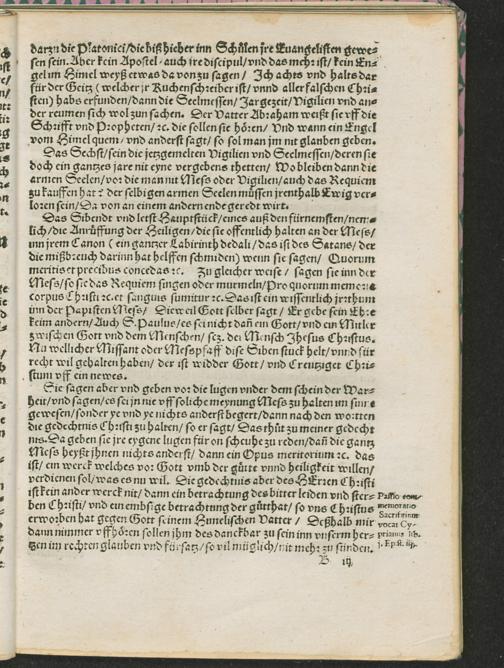 darzu die Platonici/die biß hieher inn Schůlen jre Euangelisten gewe-
sen sein. Aber kein Apostel/auch ire discipul/vnd das mehr ist/kein En-
gel im Himel weyß etwas da von zu sagen/ Ich achts vnd halts dar
für der Geitz (welcher jr Kuchenschreiber ist/vnnd aller falschen Chri-
sten) habs erfunden/dann die Seelmessen/Jargezeit/Vigilien vnd an-
der reumen sich wol zun sachen. Der Vatter Abraham weißt sie vff die
Schrifft vnd Propheten/ ⁊c. die sollen sie hören/ Vnd wann ein Engel
vom Himel quem/vnd anderst sagt/so sol man jm nit glauben geben.
Das Sechst/sein die jetzgemelten Vigilien vnd Seelmessen/deren sie
doch ein gantzes jare nit eyne vergebens thetten/Wo bleiben dann die
armen Seelen/vor die man nit Mess oder Vigilien/auch das Requiem
zu kauffen hat? der selbigen armen Seelen müssen jrenthalb Ewig ver-
loren sein/Da von an einem andern ende geredt wirt.
Das Sibendt vnd letst Hauptstück/eines auß den fürnemsten/nem-
lich/die Anrůffung der Heiligen/die sie offentlich halten an der Mess/
inn jrem Canon (ein gantzer Labirinth dedali/das ist des Satans/der
die mißbreuch darinn hat helffen schmiden) wenn sie sagen/ Quorum
meritis et precibus concedas ⁊c. Zu gleicher weise/ sagen sie inn der
Mess/so sie das Requiem singen oder murmeln/Pro quorum memoria
corpus Christi ⁊c. et sanguis sumitur ⁊c. Das ist ein wissentlich jrrthum
inn der Papisten Mess/ Dieweil Gott selber sagt/ Er gebe sein Ehre
keim andern/Auch S. Paulus/es sei nicht dañ ein Gott/vnd ein Mitler
zwischen Gott vnd dem Menschen/ scz. der Mensch Jhesus Christus.
Na wellicher Missant oder Messpfaff dise Siben stuck helt/vnnd für
recht wil gehalten haben/der ist widder Gott/vnd Creutziget Chri-
stum vff ein newes.
Sie sagen aber vnd geben vor die lugen vnder dem schein der War-
heit/vnd sagen/es sei jn nie vff soliche meynung Mess zu halten im sinne
gewesen/sonder ye vnd ye nichts anderst begert/dann nach den worten
die gedechtnis Christi zu halten/so er sagt/Das thůt zu meiner gedecht
nis. Da geben sie jre eygene lugen für on scheuhe zu reden/dañ die gantz
Mess heyßt jhnen nichts anderst/dann ein Opus meritorium ⁊c. das
ist/ein werck welches vor Gott vmb der gütte vnnd heiligkeit willen/
verdienen sol/was es nu wil. Die gedechtnis aber des HErren Christi
ist kein ander werck nit/dann ein betrachtung des bitter leiden vnd ster-
ben Christi/vnd ein embsige betrachtung der gütthat/so vns Christus
erworben hat gegen Gott seinem Himelischen Vatter/ Deßhalb mir
dann nimmer vffhören sollen jhm des danckbar zu sein inn vnserm her-
tzen im rechten glauben vnd fürsatz/so vil müglich/nit mehr zu sünden.
Passio com-
memoratio
Sacrificium
vocat Cy-
prianus lib.
j. Epist. iij.
B iij